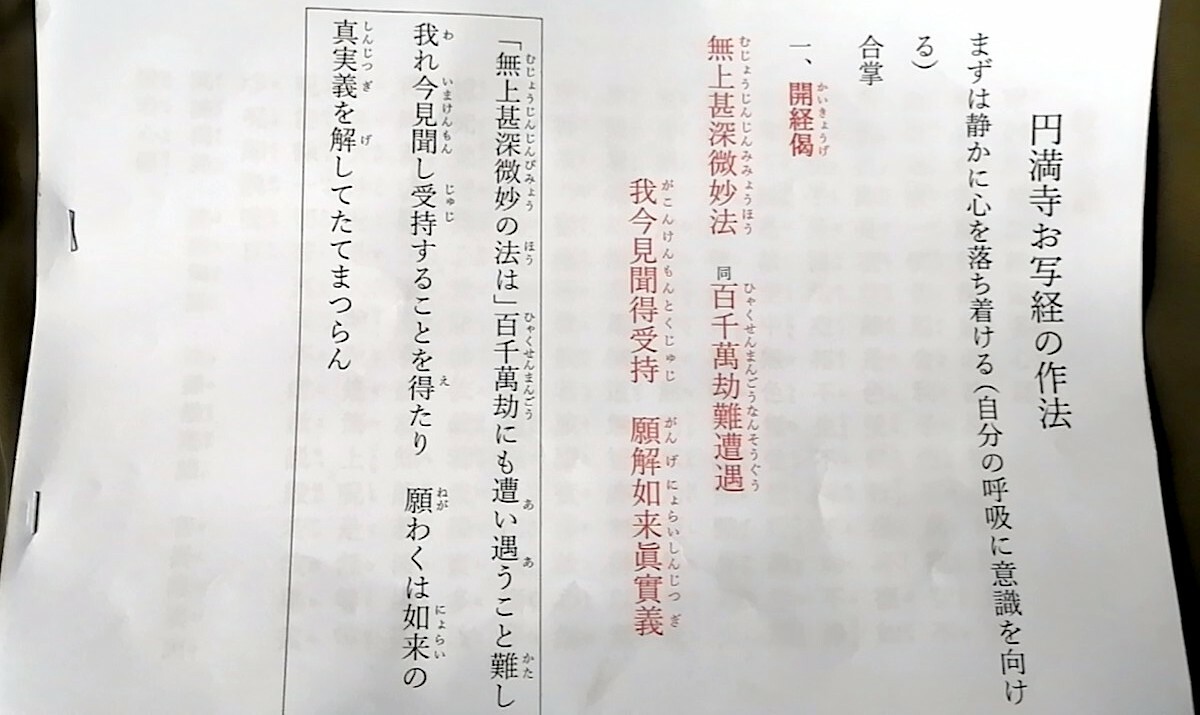 円満寺お写経の作法
まずは静かに心を落ち着ける（自分の呼吸に意識を向け
る）
合掌
一、開経偈
かいきょうげ
無上甚深微妙法　同百千萬劫難遭遇
むじょうじんじんみみょうほう　ひゃくせんまんごうなんそうぐう
我今見聞得受持　願解如来眞實義
がこんけんもんとくじゅじ　がんげにょらいしんじつぎ
「無上甚深微妙の法は」百千萬劫にも遭い遇うこと難し
むじょうじんじんびみょう　ほう　ひゃくせんまんごう　あ　あ　かた
我れ今見聞し受持することを得たり　願わくは如来の
わ　いまけんもん　じゅじ　え　ねが　にょらい
真実義を解してたてまつらん
しんじつぎ　げ